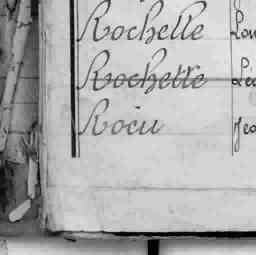 Rochelle Lou
Rochette Léo
Rocu Jea